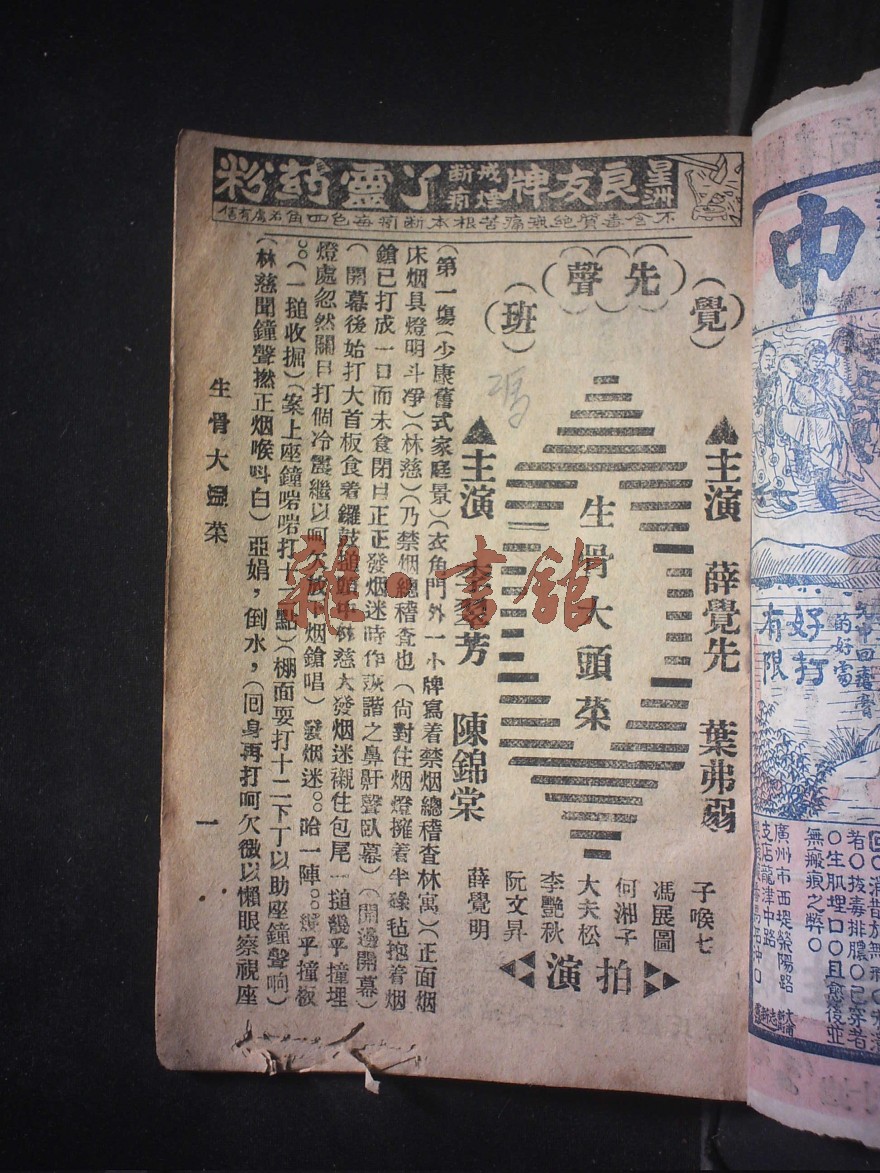 星洲良友牌戒煙断癮丫靈葯粉
不含毒質絶無痛苦根本断癮每色四角各處有售
（覺）
（先）（聲）
（班）
▲主演 薛覺先 葉弗弱
生骨大頭菜
▲主演 李翠芳 陳錦棠
子喉七
馮展圖
何湘子
大夫松
李艷秋
阮文昇
薛覺明
拍演
（第一塲）（少康舊式家庭景）（衣角門外一小牌寫着禁烟總稽查林寓）（正面烟
床烟具燈明斗净）（林慈）（乃禁烟總稽查也（尙對住烟燈擁着半碌毡抱着烟
鎗已打成一口而未食閉目正正發烟迷時作詼諧之鼻鼾聲臥幕）（開邊開幕）
（開幕後始打大首板食着鑼鼓搥頭中林慈大發烟迷襯住包尾一搥幾乎撞埋
燈處忽然關目打個冷震繼以呵欠放下烟鎗唱）發烟迷○○哈一陣○○幾乎撞板
○○（一搥收掘）（案上座鐘啱啱打十二點）（棚面耍打十二下丁以助座鐘聲响）
（林慈聞鐘聲撚正烟喉呌白）亞娟，倒水，（囘身再打呵欠微以懶眼察視座
生骨大頭菜
一
中
好打
有限
的好當
者○拔毒排膿○已穿者
○生肌埋口○且愈後並
無癍痕之弊○
廣州市西堤榮陽路
支店龍津中路